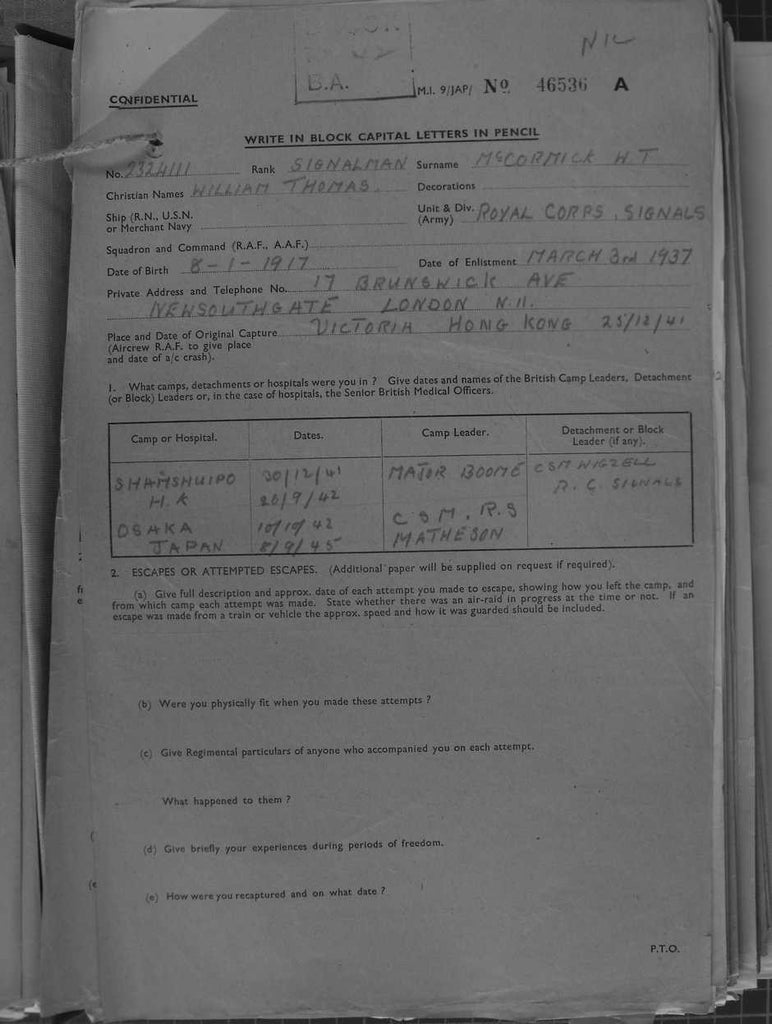 NIL
B.A.
M.I. 9/JAP/ No 46536 A
CONFIDENTIAL
WRITE IN BLOCK CAPITAL LETTERS IN PENCIL
No. 2324111 Rank SIGNALMAN Surname McCORMICK W.T
Christian Names WILLIAM THOMAS. Decorations
Ship (R.N., U.S.N. or Merchant Navy
Unit & Div. (Army) ROYAL CORPS, SIGNALS
Squadron and Command (R.A.F., A.A.F.)
Date of Birth 8-1-1917 Date of Enlistment MARCH 3rd 1937
Private Address and Telephone No. 17 BRUNSWICK AVE
NEWSOUTHGATE LONDON N.11.
Place and Date of Original Capture VICTORIA HONG KONG 25/12/41
(Aircrew R.A.F. to give place
and date of a/c crash).
1. What camps, detachments or hospitals were you in ? Give dates and names of the British Camp Leaders, Detachment
(or Block) Leaders or, in the case of hospitals, the Senior British Medical Officers.
Camp or Hospital. Dates. Camp Leader. Detachment or Block Leader (if any).
SHAMSHUIPO 30/12/41 MAJOR BOONE CSM WIGZELL
H.K 26/9/42 R.C. SIGNALS
OSAKA 10/10/42 C S M. R.S
JAPAN 8/9/45 MATHESON
2. ESCAPES OR ATTEMPTED ESCAPES. (Additional paper will be supplied on request if required).
(a) Give full description and approx. date of each attempt you made to escape, showing how you left the camp, and
from which camp each attempt was made. State whether there was an air-raid in progress at the time or not. If an
escape was made from a train or vehicle the approx. speed and how it was guarded should be included.
(b) Were you physically fit when you made these attempts ?
(c) Give Regimental particulars of anyone who accompanied you on each attempt.
What happened to them ?
(d) Give briefly your experiences during periods of freedom.
(e) How were you recaptured and on what date ?
P.T.O.